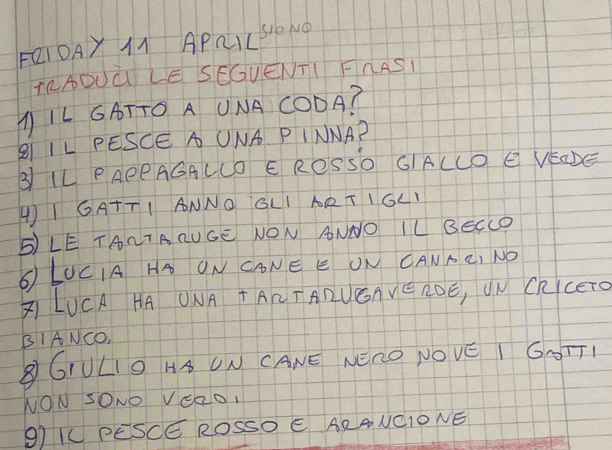 FRIDAY 11 APRIL SIGNO
TRADUCI LE SEGUENTI FRASI
1) IL GATTO A UNA CODA?
2) IL PESCE A UNA PINNA?
3) IL PAPPAGALLO E ROSSO GIALLO E VERDE
4) I GATTI ANNO GLI ARTIGLI
5) LE TARTARUGE NON ANNO IL BECCO
6) LUCIA HA UN CANE E UN CANARINO
7) LUCA HA UNA TARTARUGA VERDE, UN CRICETO
BIANCO.
8) GIULIO HA UN CANE NERO NOVE I GATTI
NON SONO VERDI
9) IL PESCE ROSSO E ARANCIONE